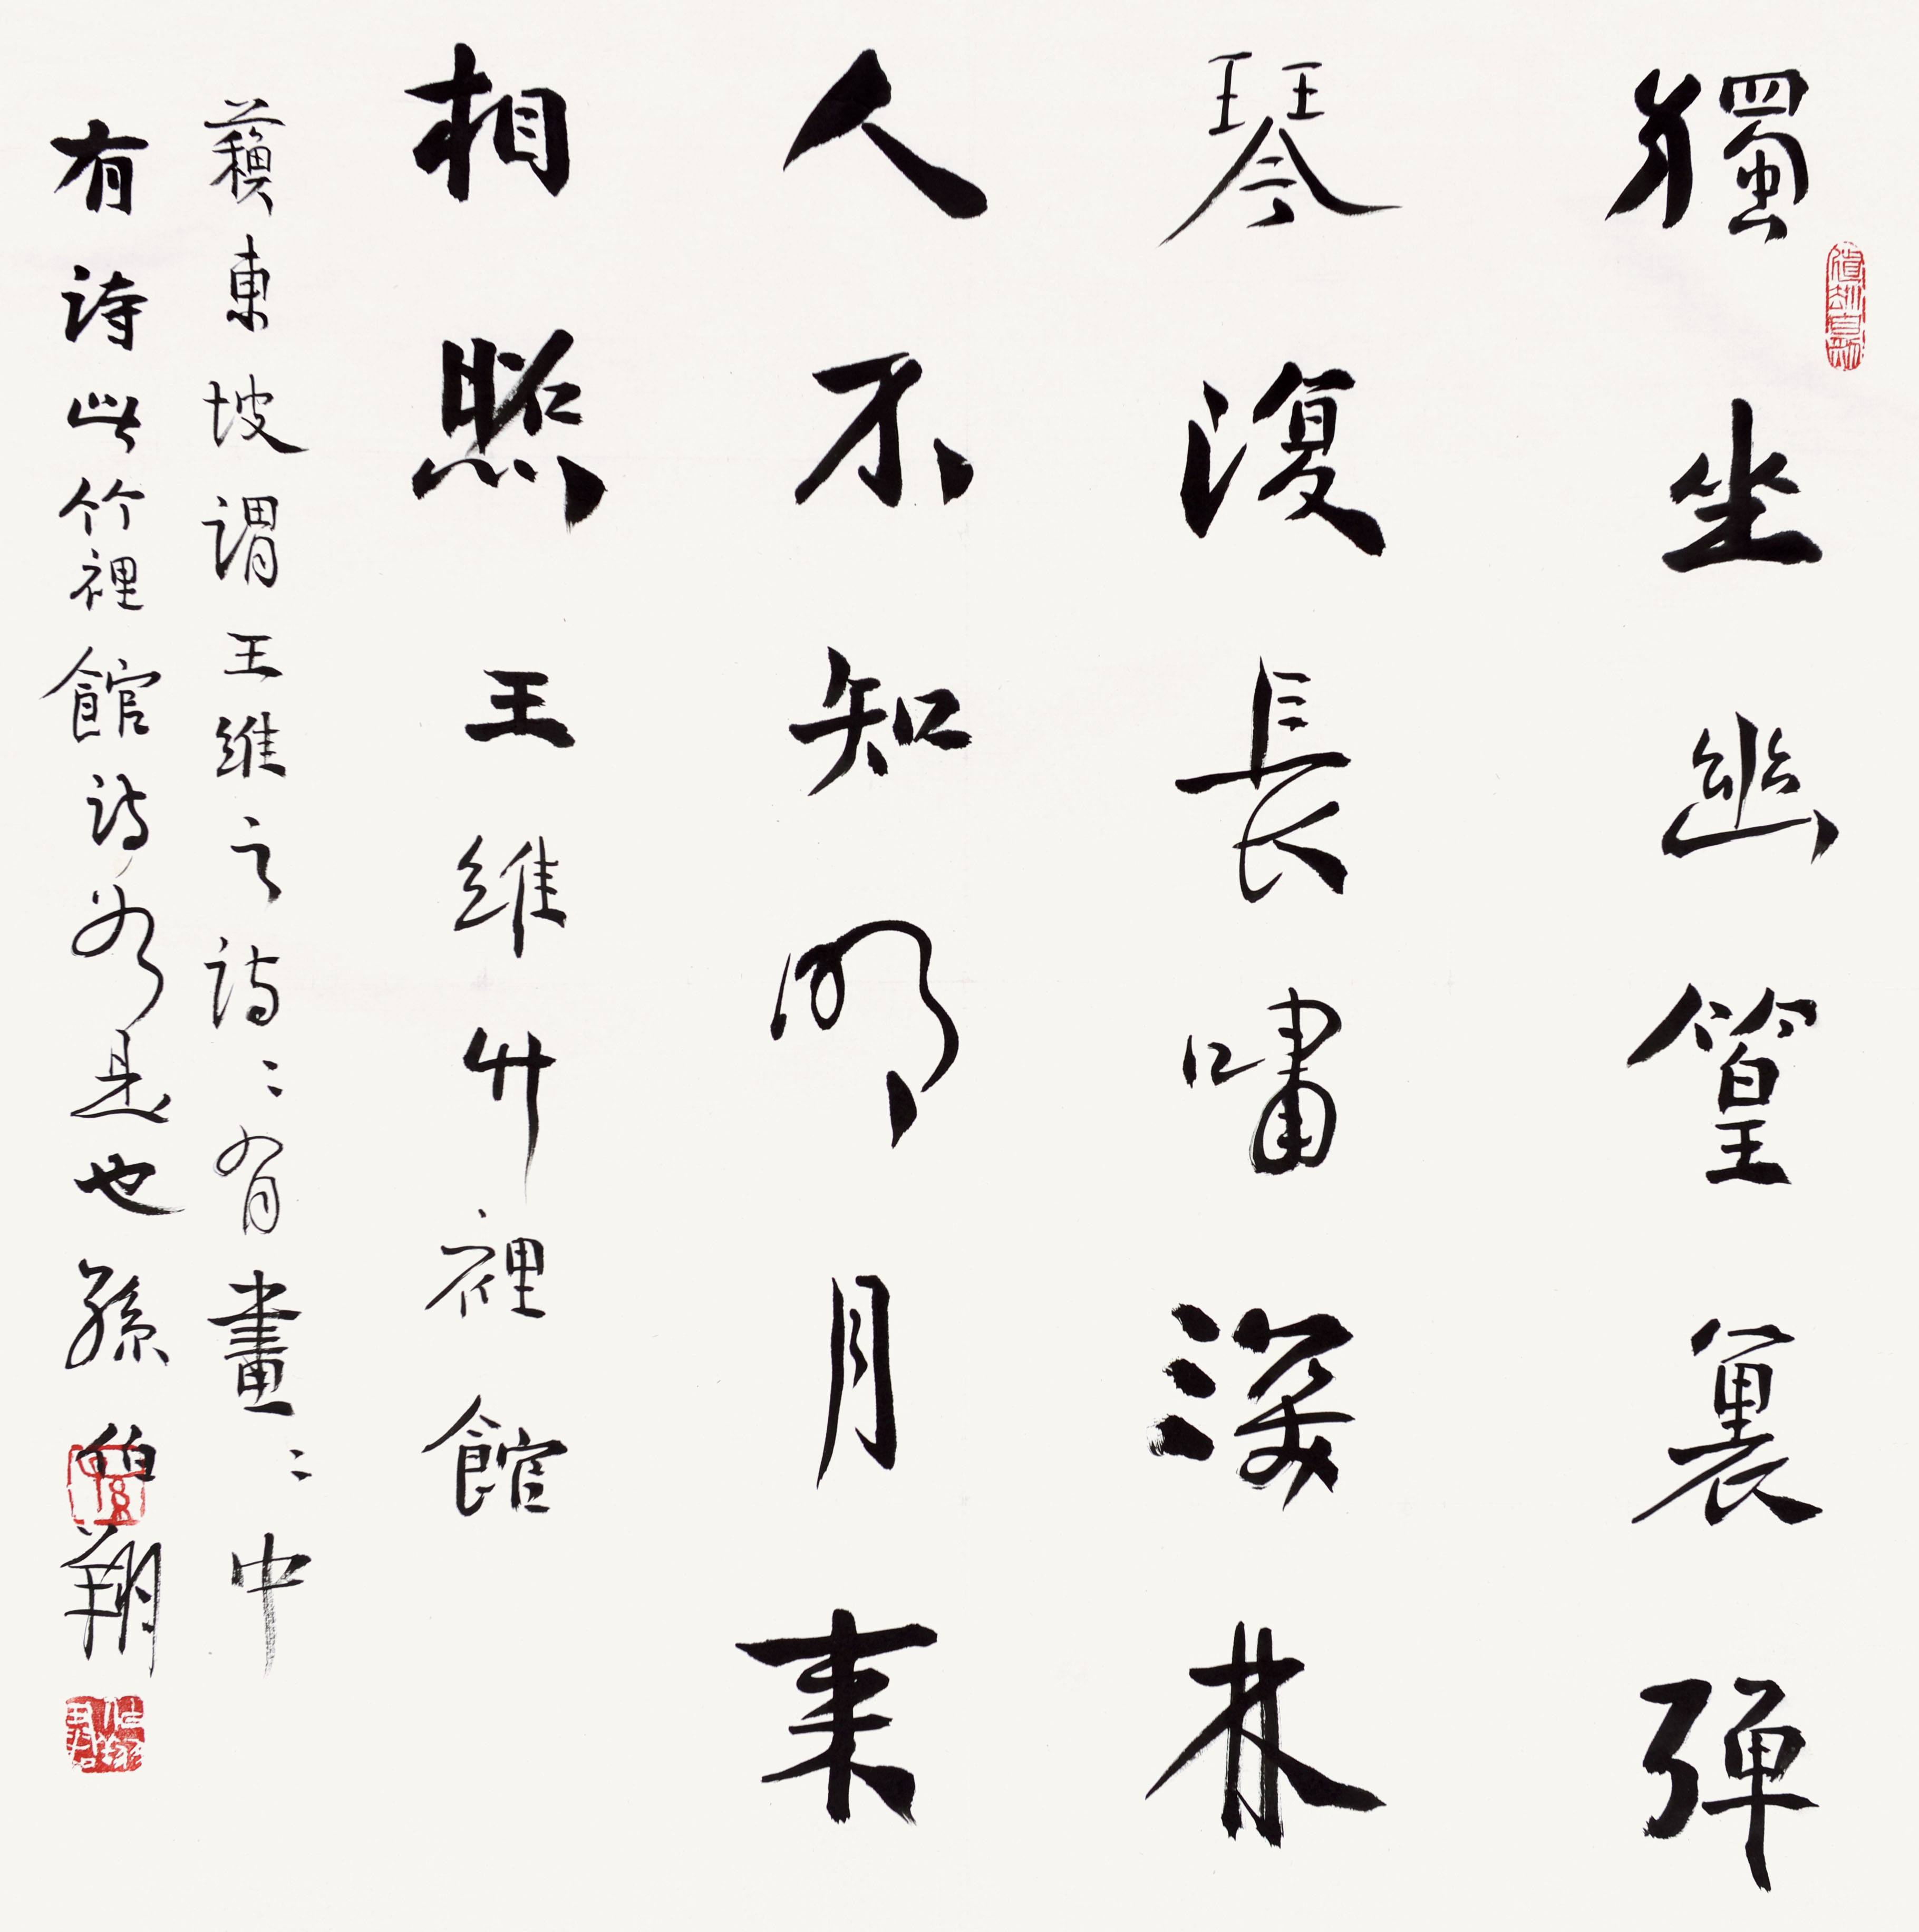 獨坐幽篁裏彈
琴復長嘯深林
人不知明月来
相照王維竹裡館
蘇東坡謂王維之詩〻有畫〻中
有詩此竹裡館詩即是也孫伯翔